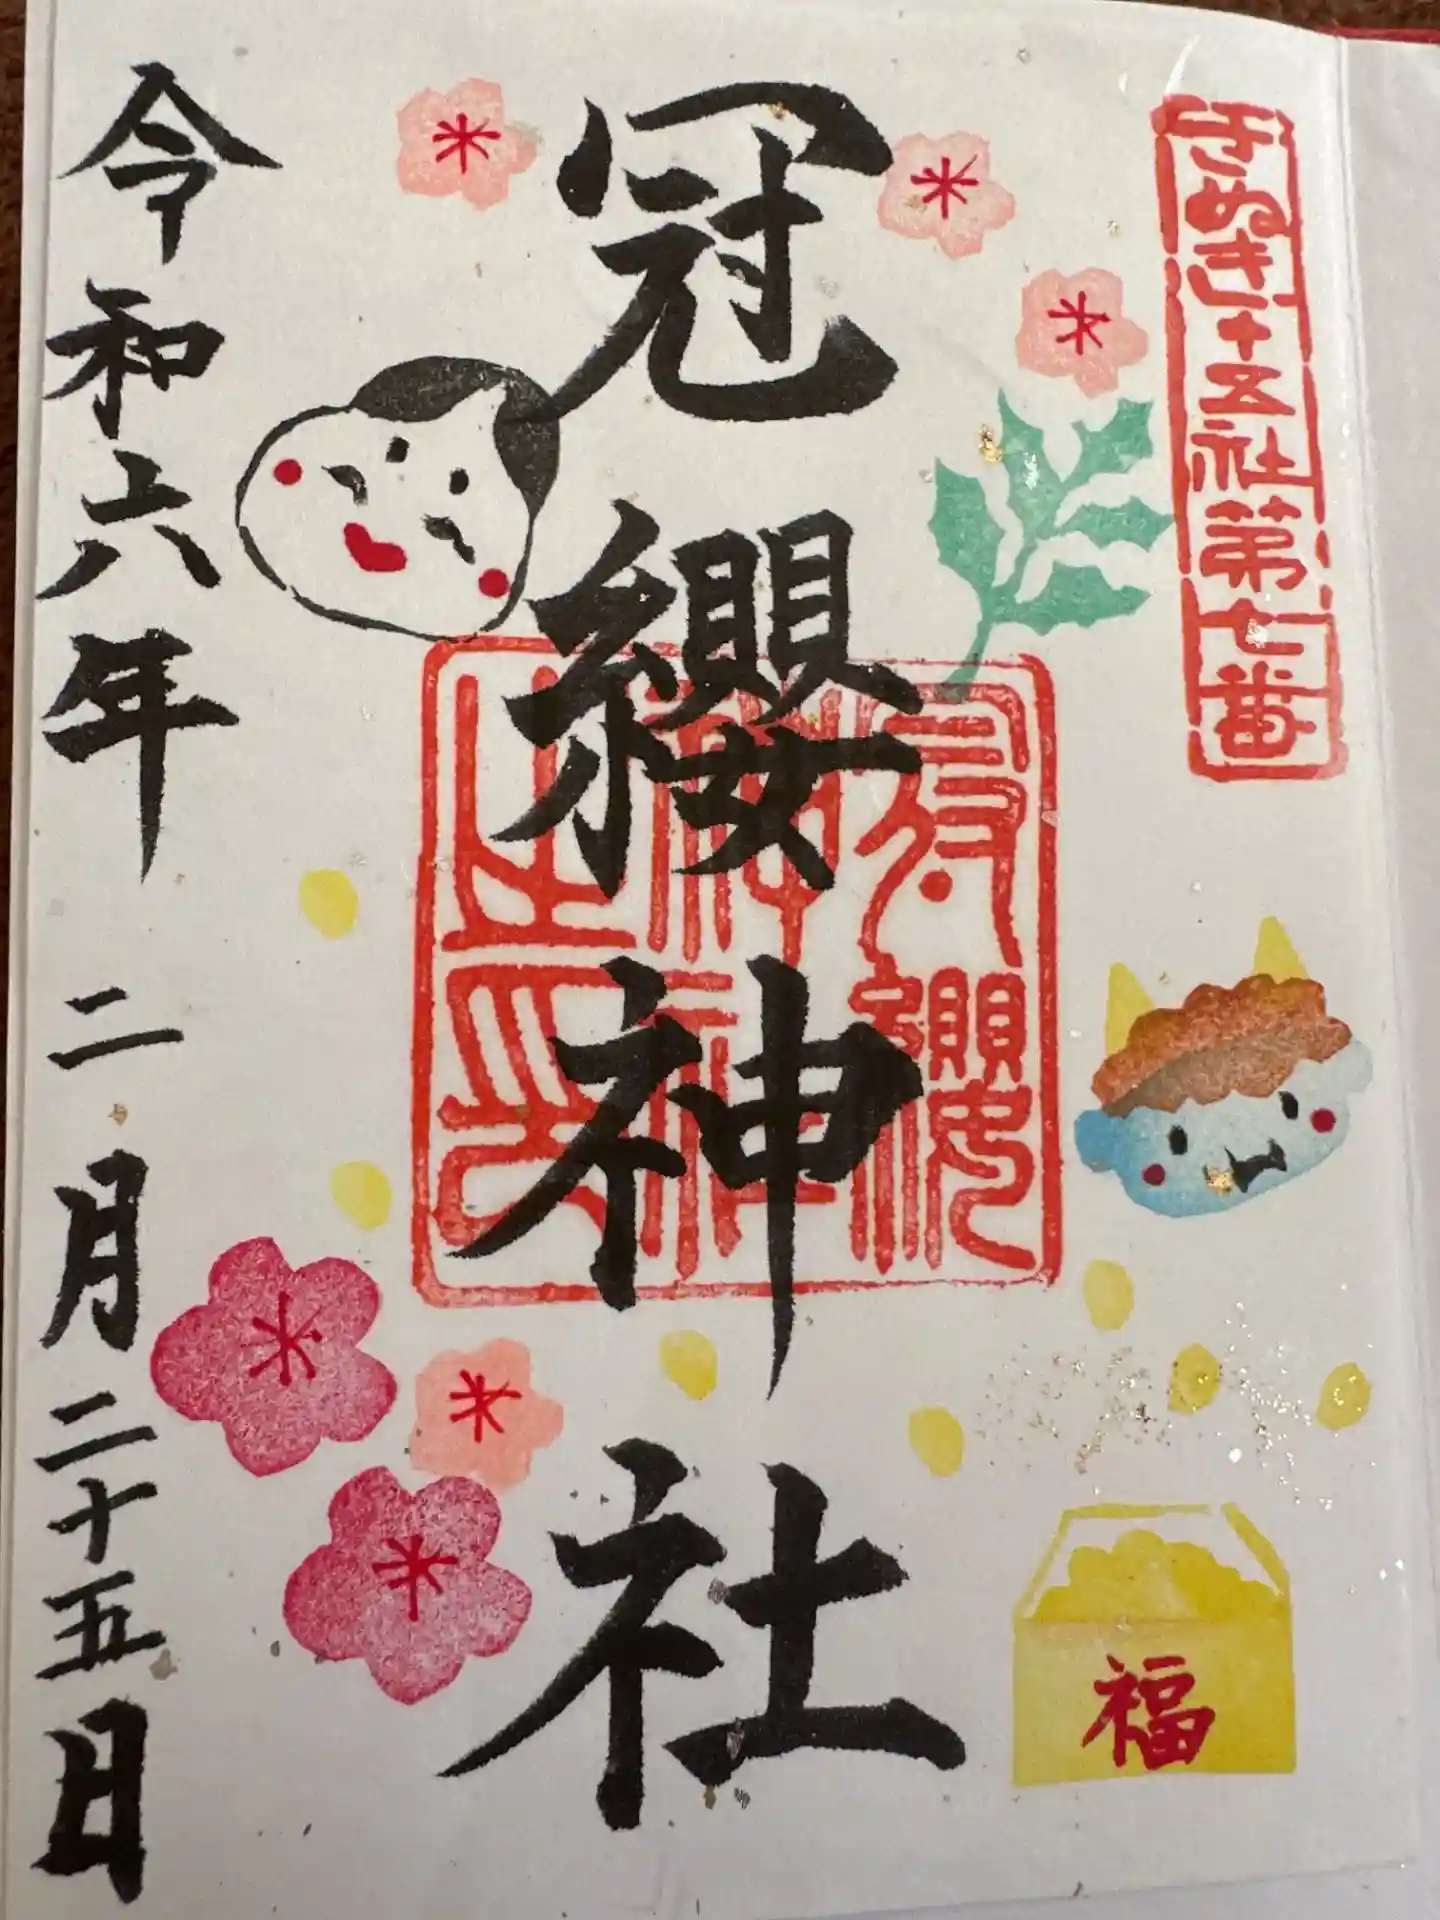 さぬき十五社第七番
冠纓神社
冠纓神社之印
福
令和六年 二月二十五日